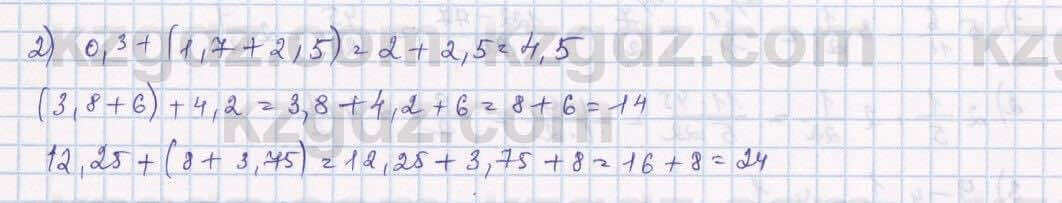 2) 0,3 + (1,7 + 2,5) = 2 + 2,5 = 4,5
(3,8 + 6) + 4,2 = 3,8 + 4,2 + 6 = 8 + 6 = 14
12,25 + (8 + 3,75) = 12,25 + 3,75 + 8 = 16 + 8 = 24
kzgdz.com kzgdz.com kz
kzgdz.com